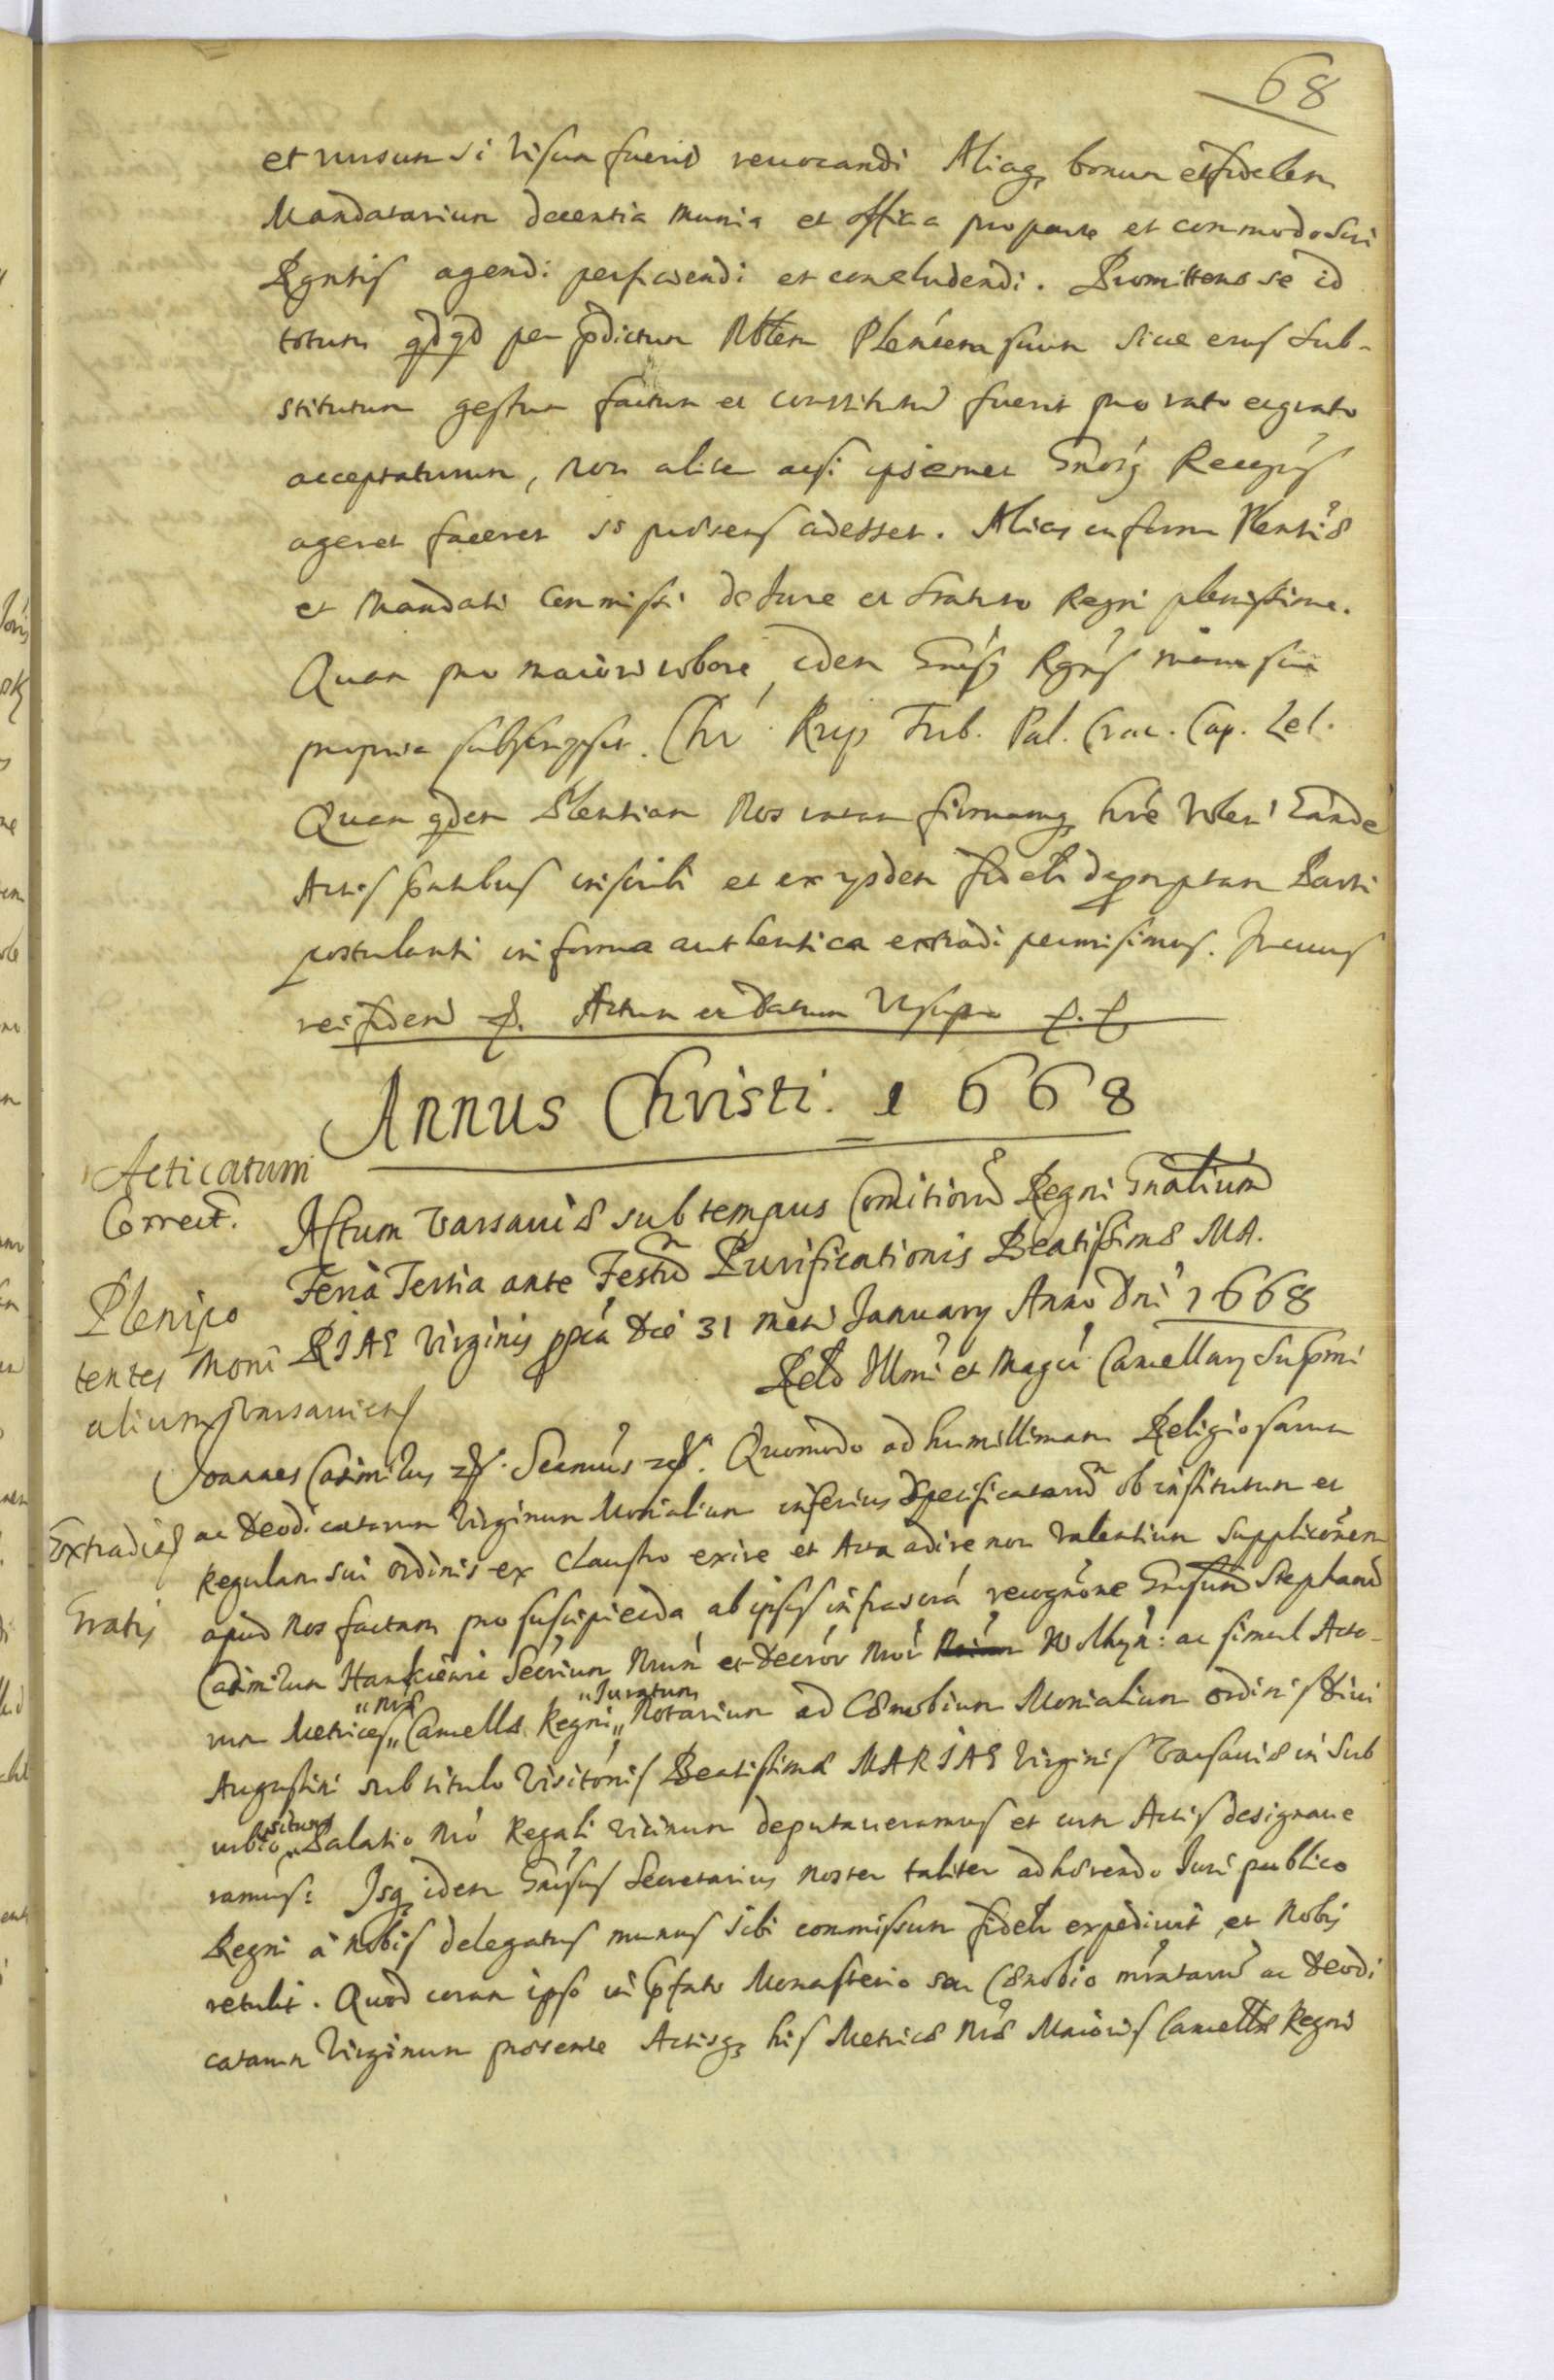 68
et rursum si visum fuerit revocandi Aliaq, bonum et fidelem
Mandatarium decentia munia et officia pro parte et commodo Sui
Rgntis agendi perficiendi et concludendi. Promittens se id
totum qdqd per pdictum Nblem Plentem suum sive eius Sub-
stitutum gestum factum et constitutu fuerit pro rato et grato
accepturum, non aliter acsi ipsemet Gnosq Recogns
ageret faceret et praesens adesset. Alias in forma Plentiae
et Mandati Commissi de Jure et Statuto Regni plenissime.
Quam pro maiori robore idem Gnsq Rgns manu sua
propria subscripsit. Chr Krup Trib. Pal. Crac. Cap. Lel.
Quam qdem Plentiam Nos ratam firmamq, hre volen Eande
Actis pntibus inscribi et ex ysdem fidelr depromptam Parti
postulanti in forma authentica extradi permisimus. In cuius
rei fidem etc. Actum et Datum Ut supra etc. etc.
Annus Christi. 1668
Acticatum
Correct.
Plenipo
tentes Moni
alium Varsaviens
Actum Varsaviae sub tempus Comitioru Regni Gnalium
Feria Tertia ante Festu Purificationis Beatissimae MA.
RIAE Virginis pxia Die 31 mens January Anno Dni 1668
Relo Illmi et Magci Cancellary Supmi
Joannes Casimirus etc. Secmus etc. Quomodo ad humillimam Religiosarum
Extradict
Gratis
ac Deodicatarum Virginum Monialium inferius specificataru ob institutum et
Regulam sui ordinis ex Claustro exire et Acta adire non valentium Supplicoem
apud Nos factam pro suscipienda ab ipsis infrascra recognoe Gnsum Stephanu
Casimirum Hankiewic Secrium Nrum et Decror Nror Wolhyn: ac simul Acto-
rum Metrices „nrae„ Cancellae Regni „Juratum„ Notarium ad Caenobium Monialium ordinis Divi
Augustini sub titulo Visitonis Beatissimae MARIAE Virginis Varsaviae in Sub
urbio „situm„ Palatio Nro Regali vicinum deputaveramus et cum Actis designave
ramus: Isq, idem Gnsus Secretarius noster taliter adhaerendo Juri publico
Regni à Nobis delegatus munus sibi commissum fidelr expedivit, et Nobis
retulit. Quod coram ipso in pfato Monasterio seu Caenobio mratarum ac Deodi
catarum Virginum praesente Actisq, his Metricae Nrae Maioris Cancellae Regni